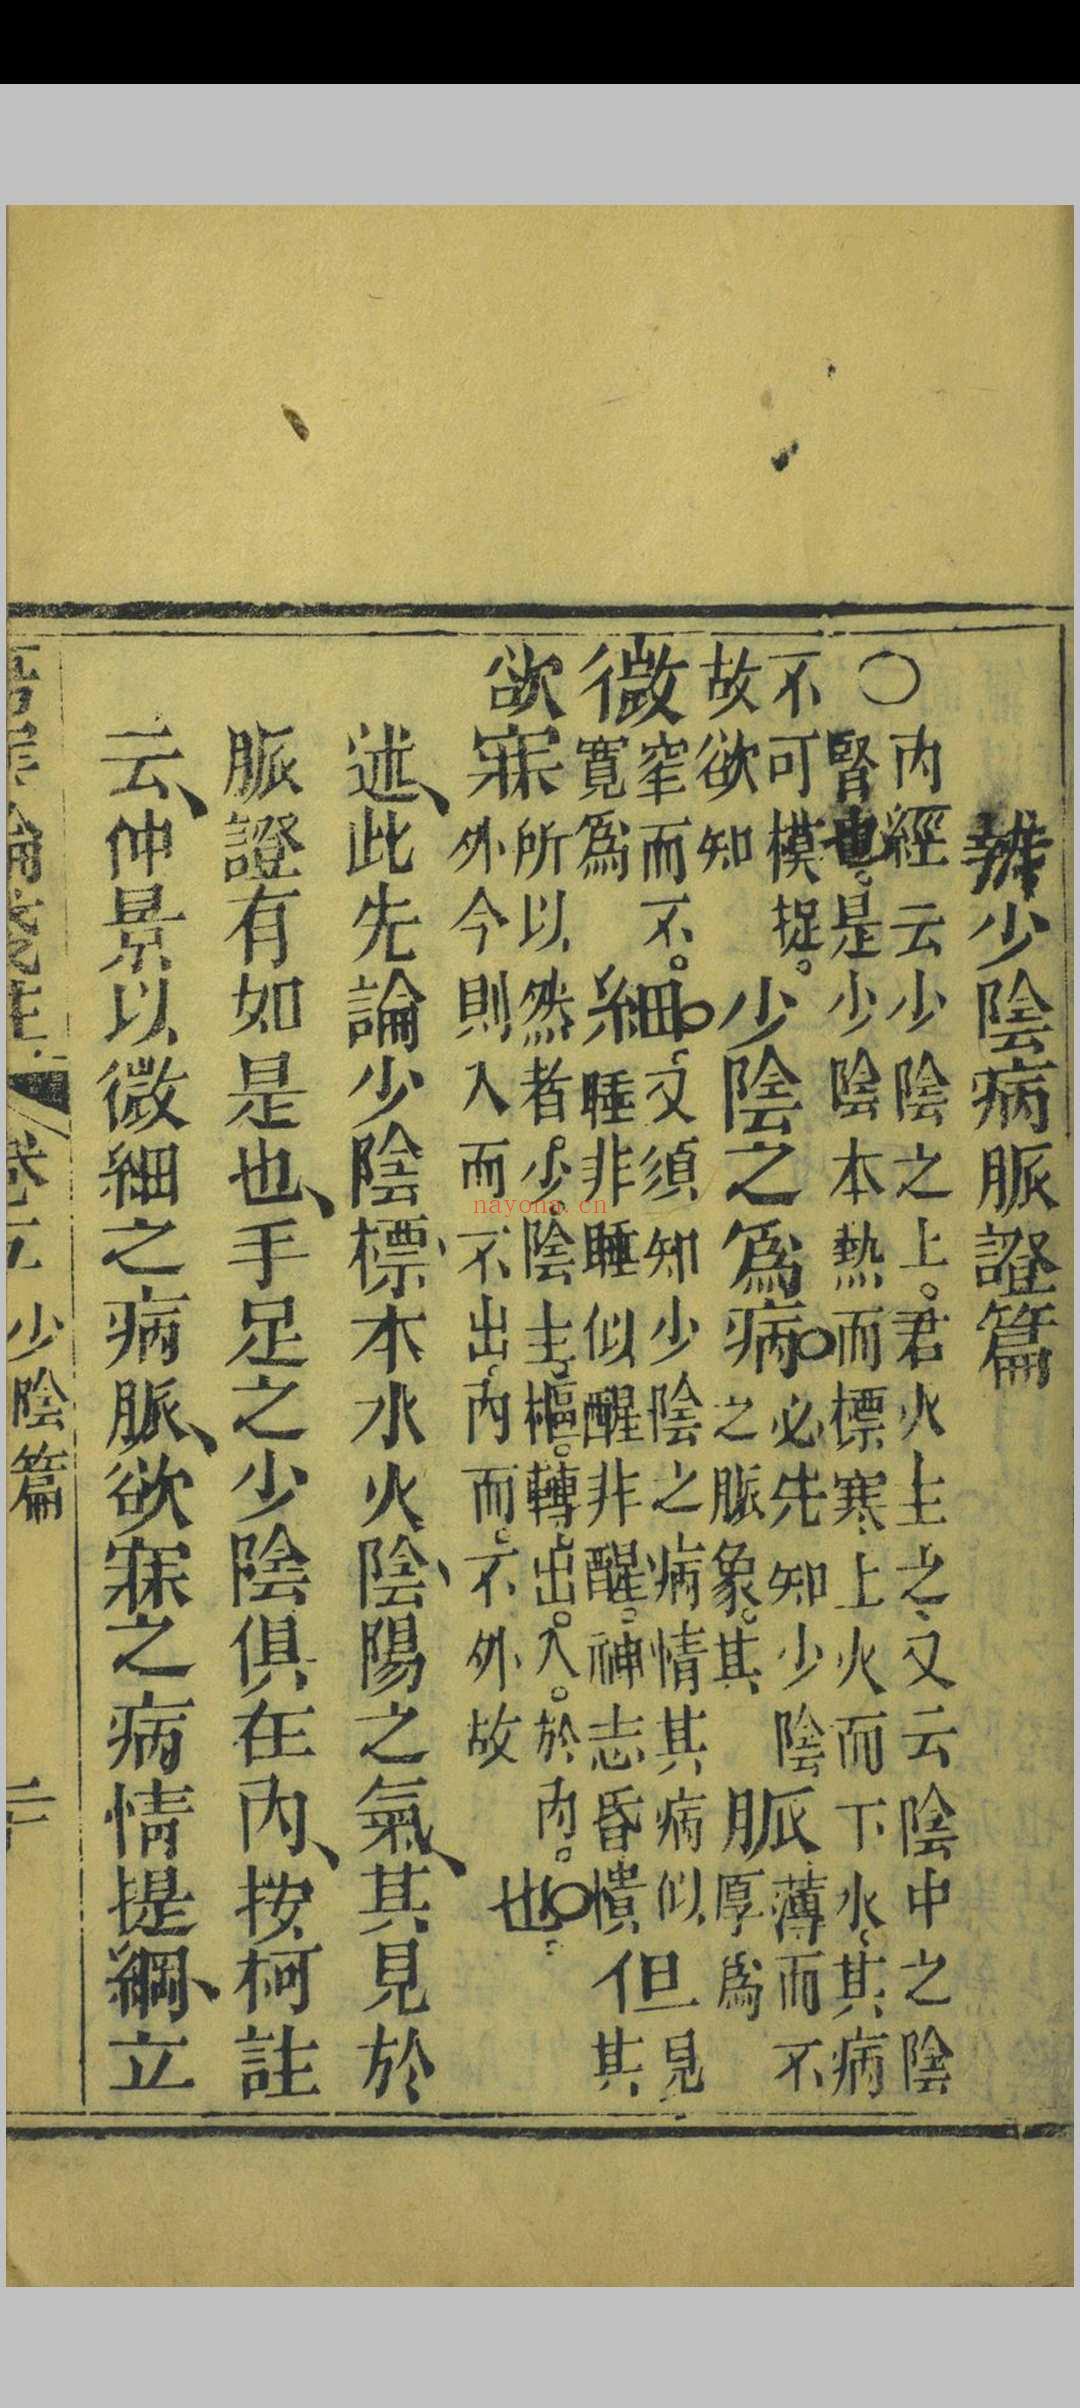 辨少陰病脈證篇
○内經云少陰之上。君火主之、又云陰中之陰
腎也。是少陰本熱而標寒、上火而下水、其病
不可模捉。
故欲知
少陰之爲病○
必先知少陰
之脈象。其
脈
薄而不
厚爲
微
窄而不。
寬爲
細○
又須知少陰之病情其病似
睡非睡似醒非醒。神志昏憒
但
見
其
欲寐
所以然者。少陰主樞。轉出。入。於内。
外今則入而不出、内而不外故
也○
述、此先論少陰標本水火陰陽之氣、其見於
脈證有如是也、手足之少陰俱在内、按柯註
云、仲景以微細之病脈、欲寐之病情提綱、立
少陰篇
nayona.cn